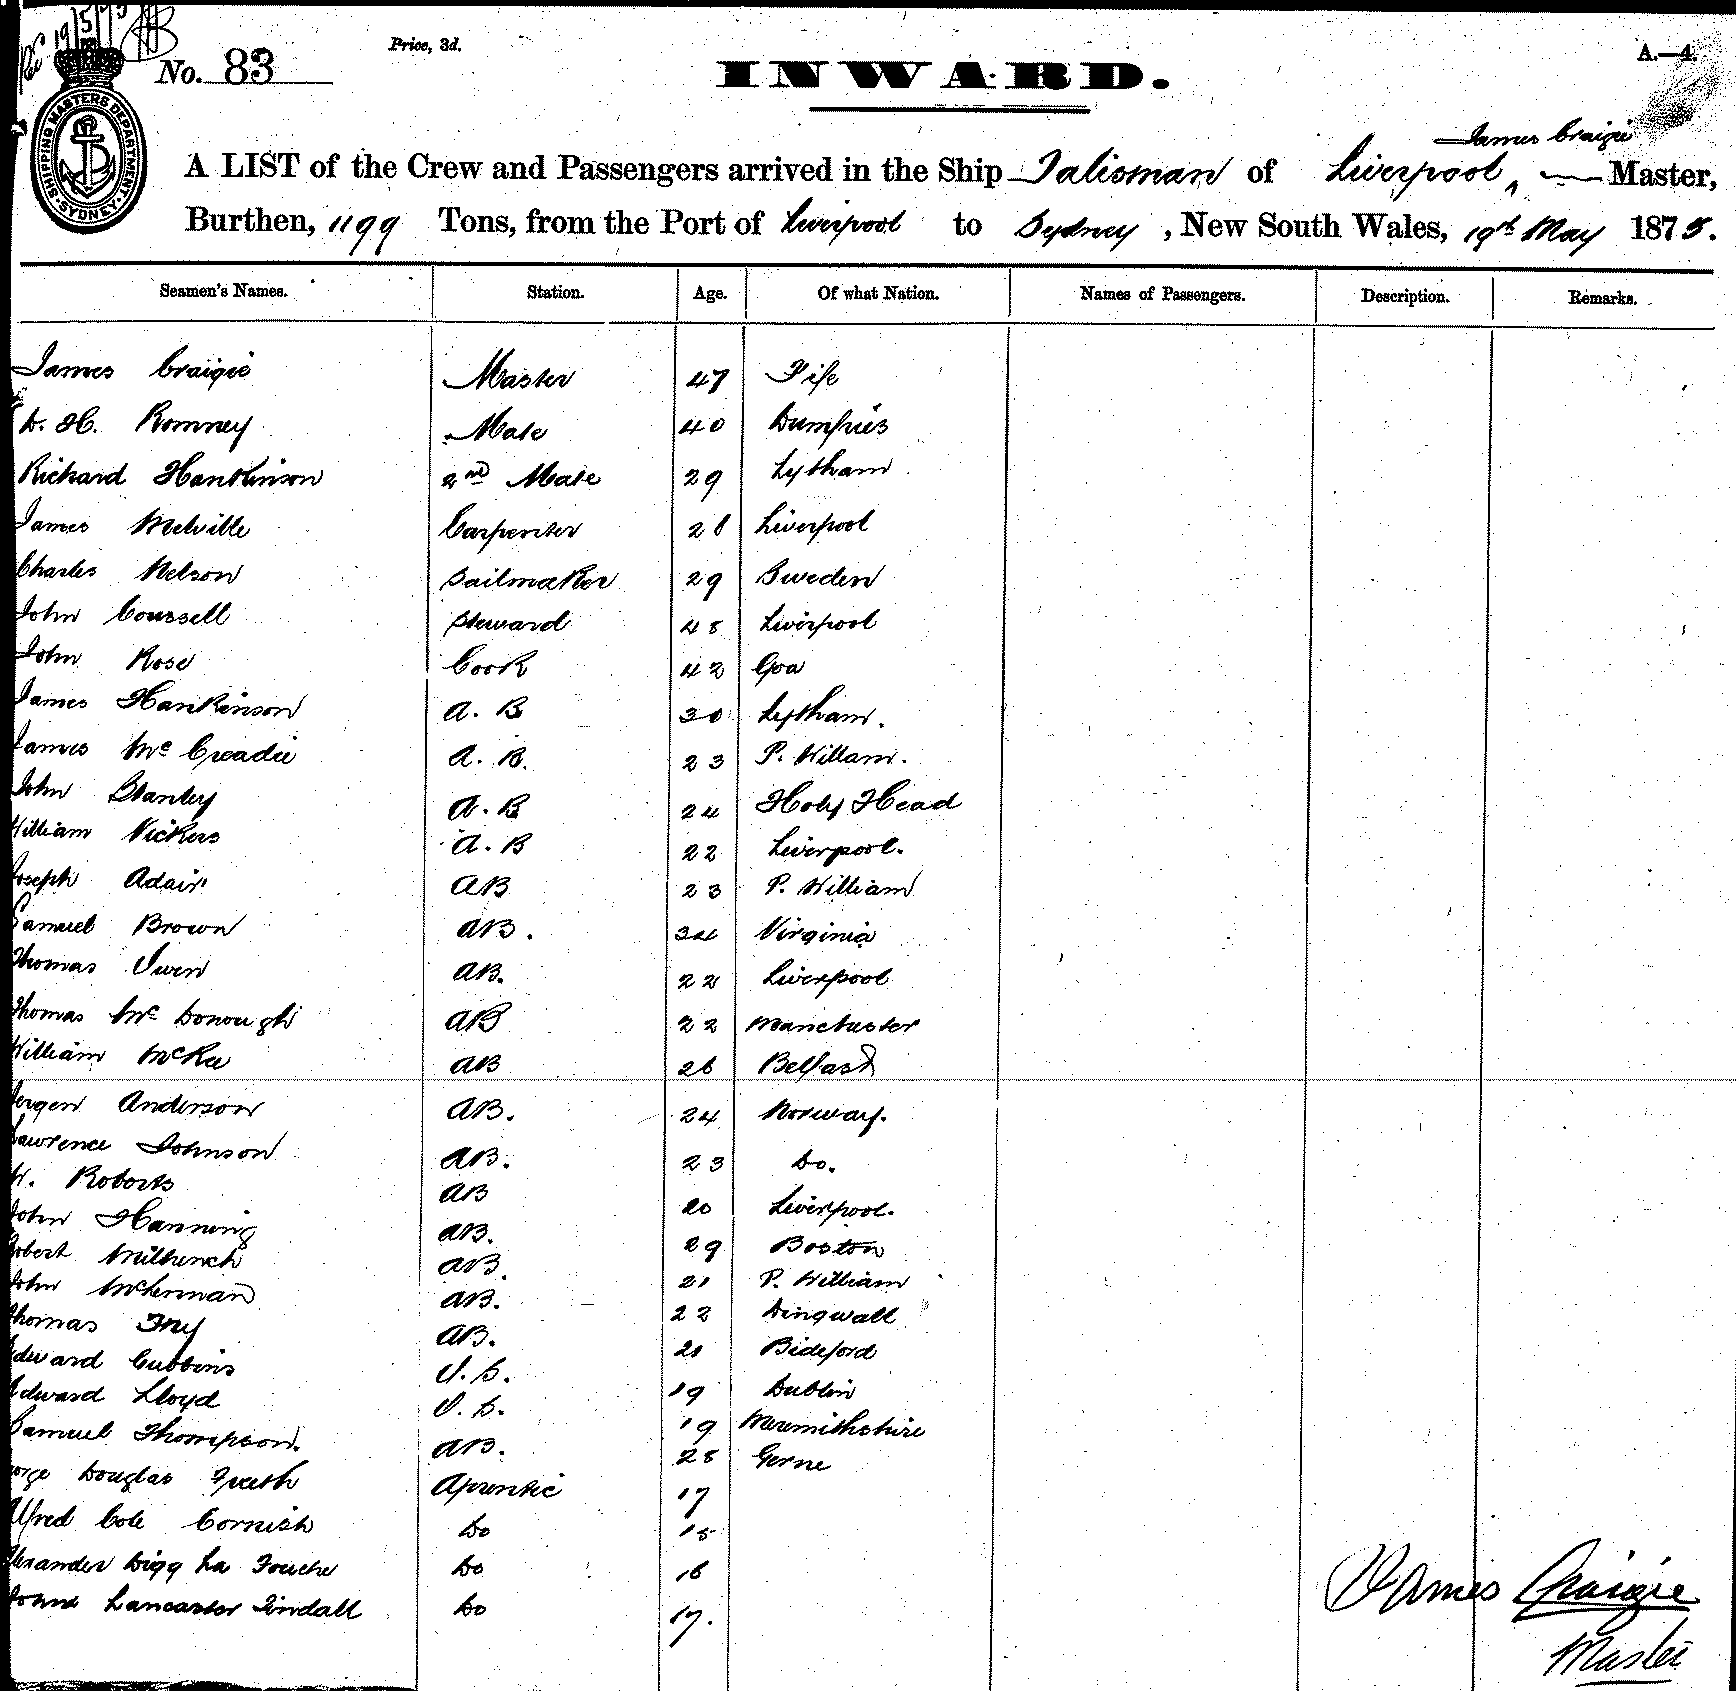 Rec 19/5/75
No. 83
Price, 3d.
INWARD.
A.—4.
SHIPPING MASTERS DEPARTMENT
SYDNEY
James Craigie
A LIST of the Crew and Passengers arrived in the Ship Talisman of Liverpool, Master,
Burthen, 1199 Tons, from the Port of Liverpool to Sydney, New South Wales, 19th May 1875.
Seamen's Names. Station. Age. Of what Nation. Names of Passengers. Description. Remarks.
James Craigie Master 47 Fife
D. H. Romney Mate 40 Dumfries
Richard Hankinson 2nd Mate 29 Lytham
James Melville Carpenter 28 Liverpool
Charles Nelson Sailmaker 29 Sweden
John Coursell Steward 45 Liverpool
John Rose Cook 42 Goa
James Hankinson A. B 30 Lytham.
James McCreadie A. B. 23 P. Willam.
John Stanley A. B 24 Holy Head
William Vickers A. B 22 Liverpool.
Joseph Adair AB 23 P. William
Samuel Brown AB. 34 Virginia
Thomas Owen AB. 22 Liverpool
Thomas McDonough AB 22 Manchester
William McKee AB 26 Belfast
Jergen Anderson AB. 24 Norway.
Lawrence Johnson AB. 23 Do.
W. Roberts AB 20 Liverpool.
John Hanning AB. 29 Boston
Robert AB. 21 P. William
John McKerman AB. 22 Dingwall
Thomas Fry AB. 21 Bideford
Edward Cubbins O. S. 19 Dublin
Edward Lloyd O. S. 19
Samuel Thompson. AB. 28
George Douglas Apprentic 17
Alfred Cole Cornish Do 15
Alexander Digg La Touche Do 16
John Lancaster Tindall Do 17.
James Craigie
Master